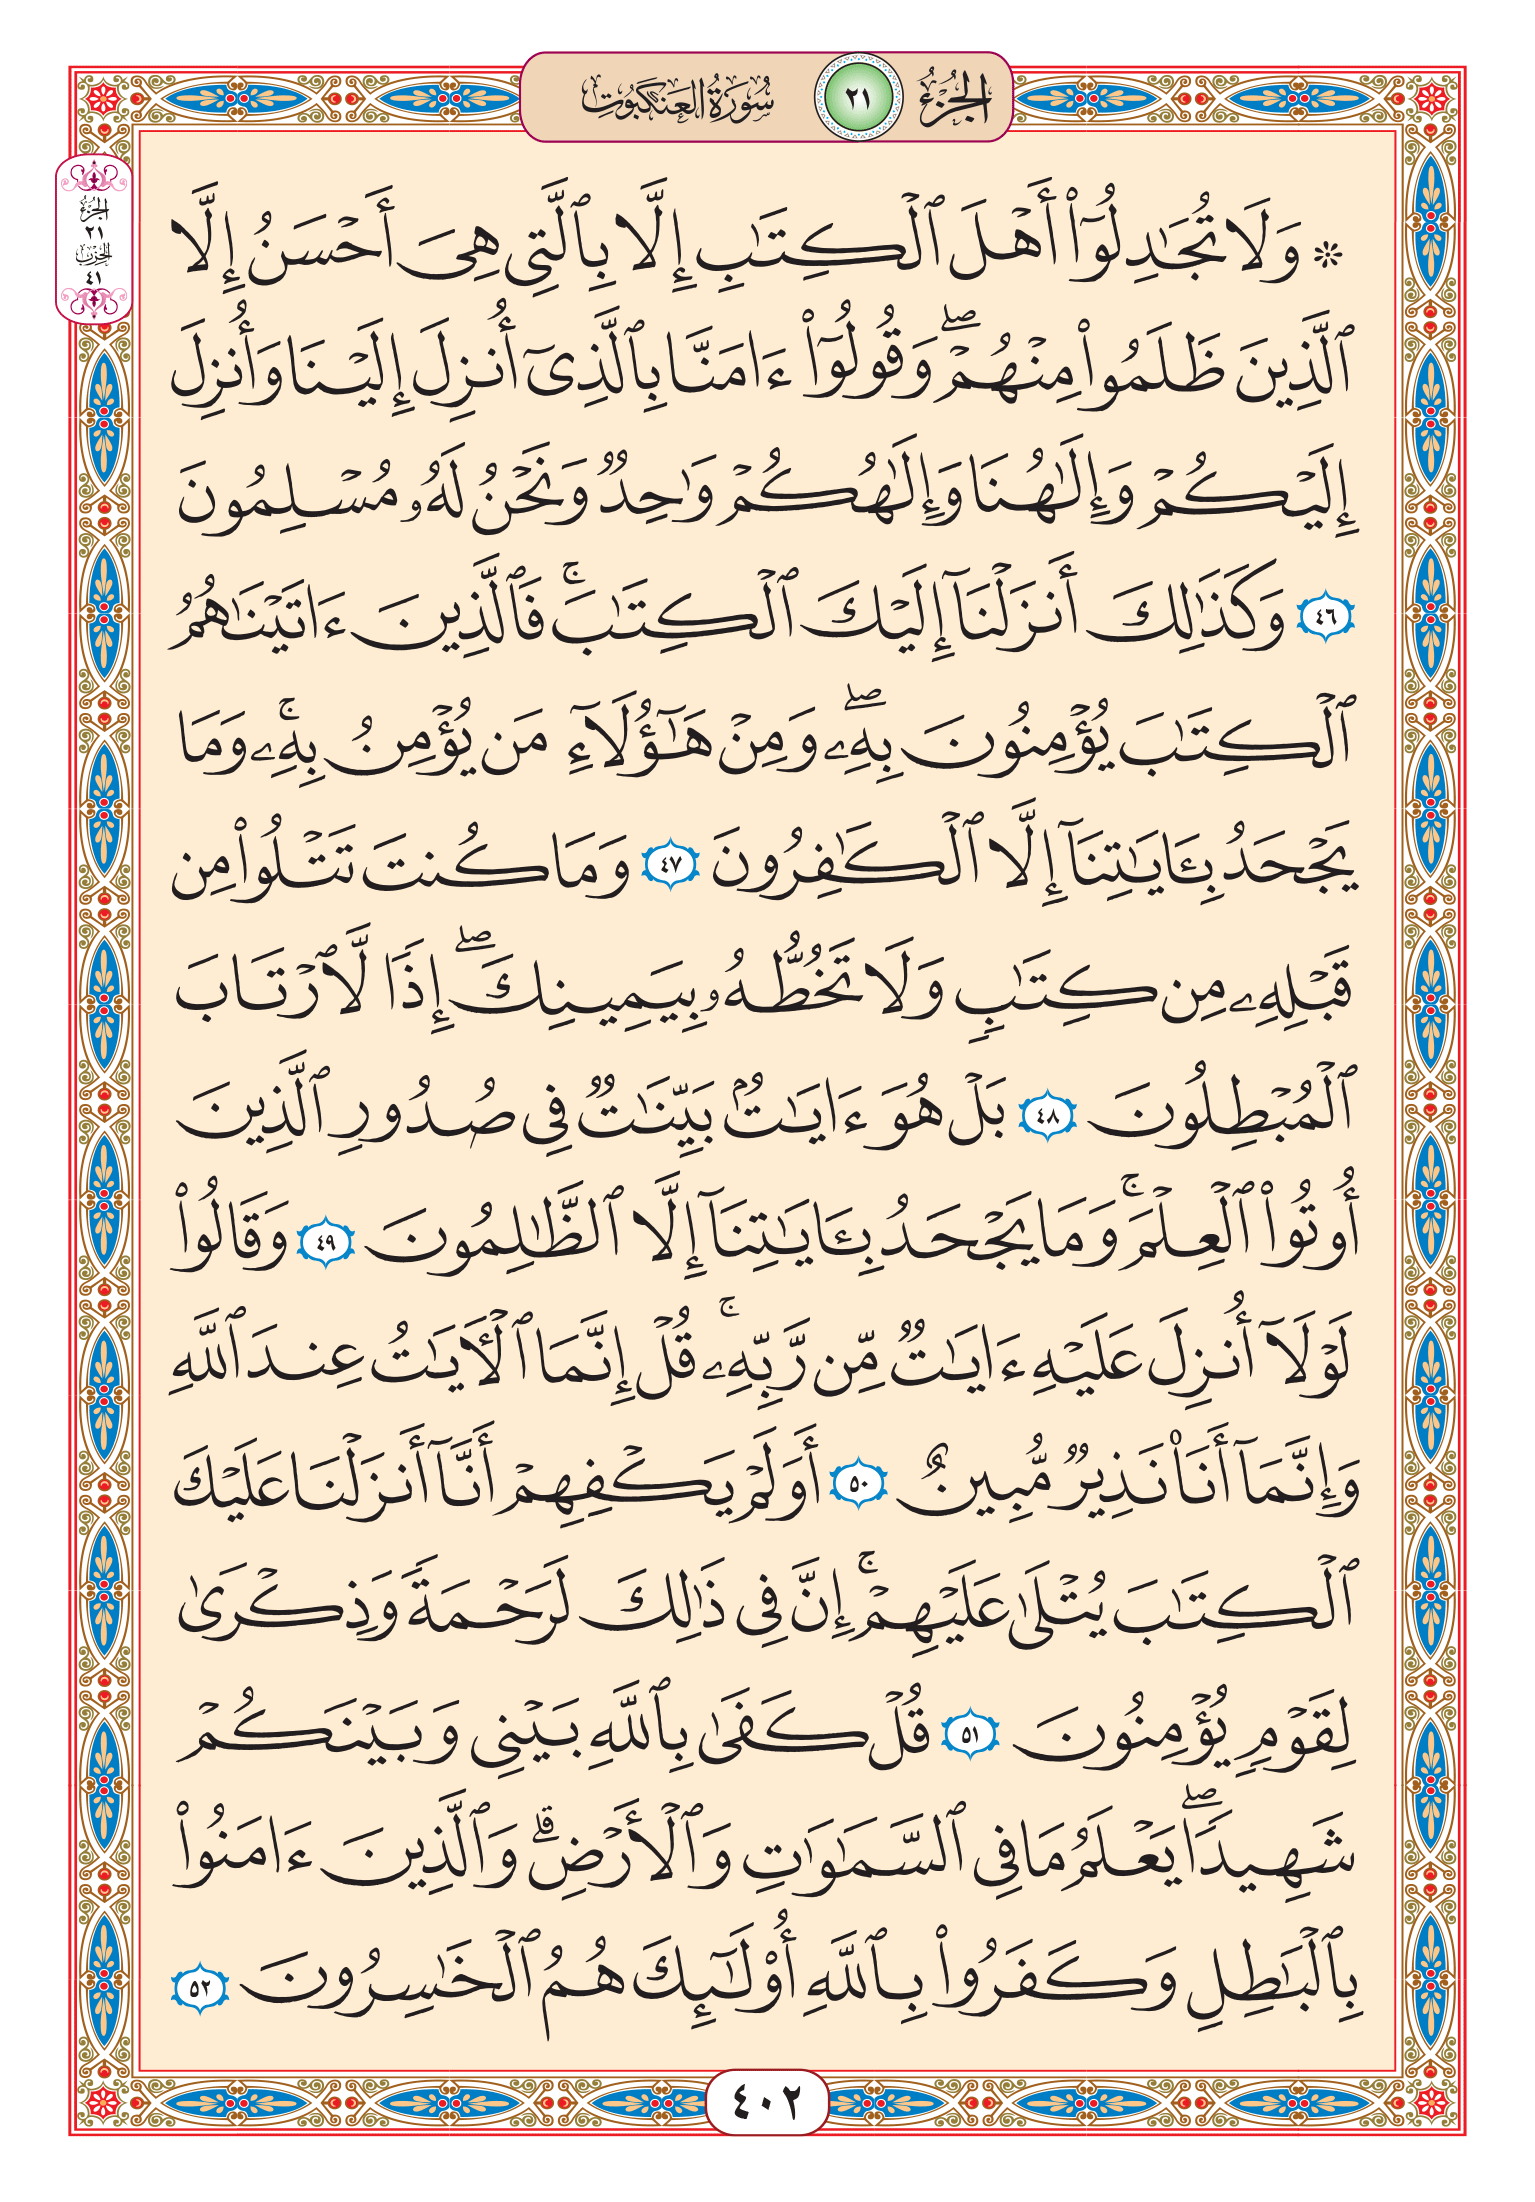 الجزء ٢١ سورة العنكبوت
الجزء
٢١
الحزب
٤١
۞ وَلَا تُجَٰدِلُوٓا۟ أَهْلَ ٱلْكِتَٰبِ إِلَّا بِٱلَّتِى هِىَ أَحْسَنُ إِلَّا
ٱلَّذِينَ ظَلَمُوا۟ مِنْهُمْ ۖ وَقُولُوٓا۟ ءَامَنَّا بِٱلَّذِىٓ أُنزِلَ إِلَيْنَا وَأُنزِلَ
إِلَيْكُمْ وَإِلَٰهُنَا وَإِلَٰهُكُمْ وَٰحِدٌ وَنَحْنُ لَهُۥ مُسْلِمُونَ
٤٦ وَكَذَٰلِكَ أَنزَلْنَآ إِلَيْكَ ٱلْكِتَٰبَ ۚ فَٱلَّذِينَ ءَاتَيْنَٰهُمُ
ٱلْكِتَٰبَ يُؤْمِنُونَ بِهِۦ ۖ وَمِنْ هَٰٓؤُلَآءِ مَن يُؤْمِنُ بِهِۦ ۚ وَمَا
يَجْحَدُ بِـَٔايَٰتِنَآ إِلَّا ٱلْكَٰفِرُونَ ٤٧ وَمَا كُنتَ تَتْلُوا۟ مِن
قَبْلِهِۦ مِن كِتَٰبٍ وَلَا تَخُطُّهُۥ بِيَمِينِكَ ۖ إِذًا لَّٱرْتَابَ
ٱلْمُبْطِلُونَ ٤٨ بَلْ هُوَ ءَايَٰتٌۢ بَيِّنَٰتٌ فِى صُدُورِ ٱلَّذِينَ
أُوتُوا۟ ٱلْعِلْمَ ۚ وَمَا يَجْحَدُ بِـَٔايَٰتِنَآ إِلَّا ٱلظَّٰلِمُونَ ٤٩ وَقَالُوا۟
لَوْلَآ أُنزِلَ عَلَيْهِ ءَايَٰتٌ مِّن رَّبِّهِۦ ۚ قُلْ إِنَّمَا ٱلْـَٔايَٰتُ عِندَ ٱللَّهِ
وَإِنَّمَآ أَنَا۠ نَذِيرٌ مُّبِينٌ ٥٠ أَوَلَمْ يَكْفِهِمْ أَنَّآ أَنزَلْنَا عَلَيْكَ
ٱلْكِتَٰبَ يُتْلَىٰ عَلَيْهِمْ ۚ إِنَّ فِى ذَٰلِكَ لَرَحْمَةً وَذِكْرَىٰ
لِقَوْمٍ يُؤْمِنُونَ ٥١ قُلْ كَفَىٰ بِٱللَّهِ بَيْنِى وَبَيْنَكُمْ
شَهِيدًا ۖ يَعْلَمُ مَا فِى ٱلسَّمَٰوَٰتِ وَٱلْأَرْضِ ۗ وَٱلَّذِينَ ءَامَنُوا۟
بِٱلْبَٰطِلِ وَكَفَرُوا۟ بِٱللَّهِ أُو۟لَٰٓئِكَ هُمُ ٱلْخَٰسِرُونَ ٥٢
٤٠٢